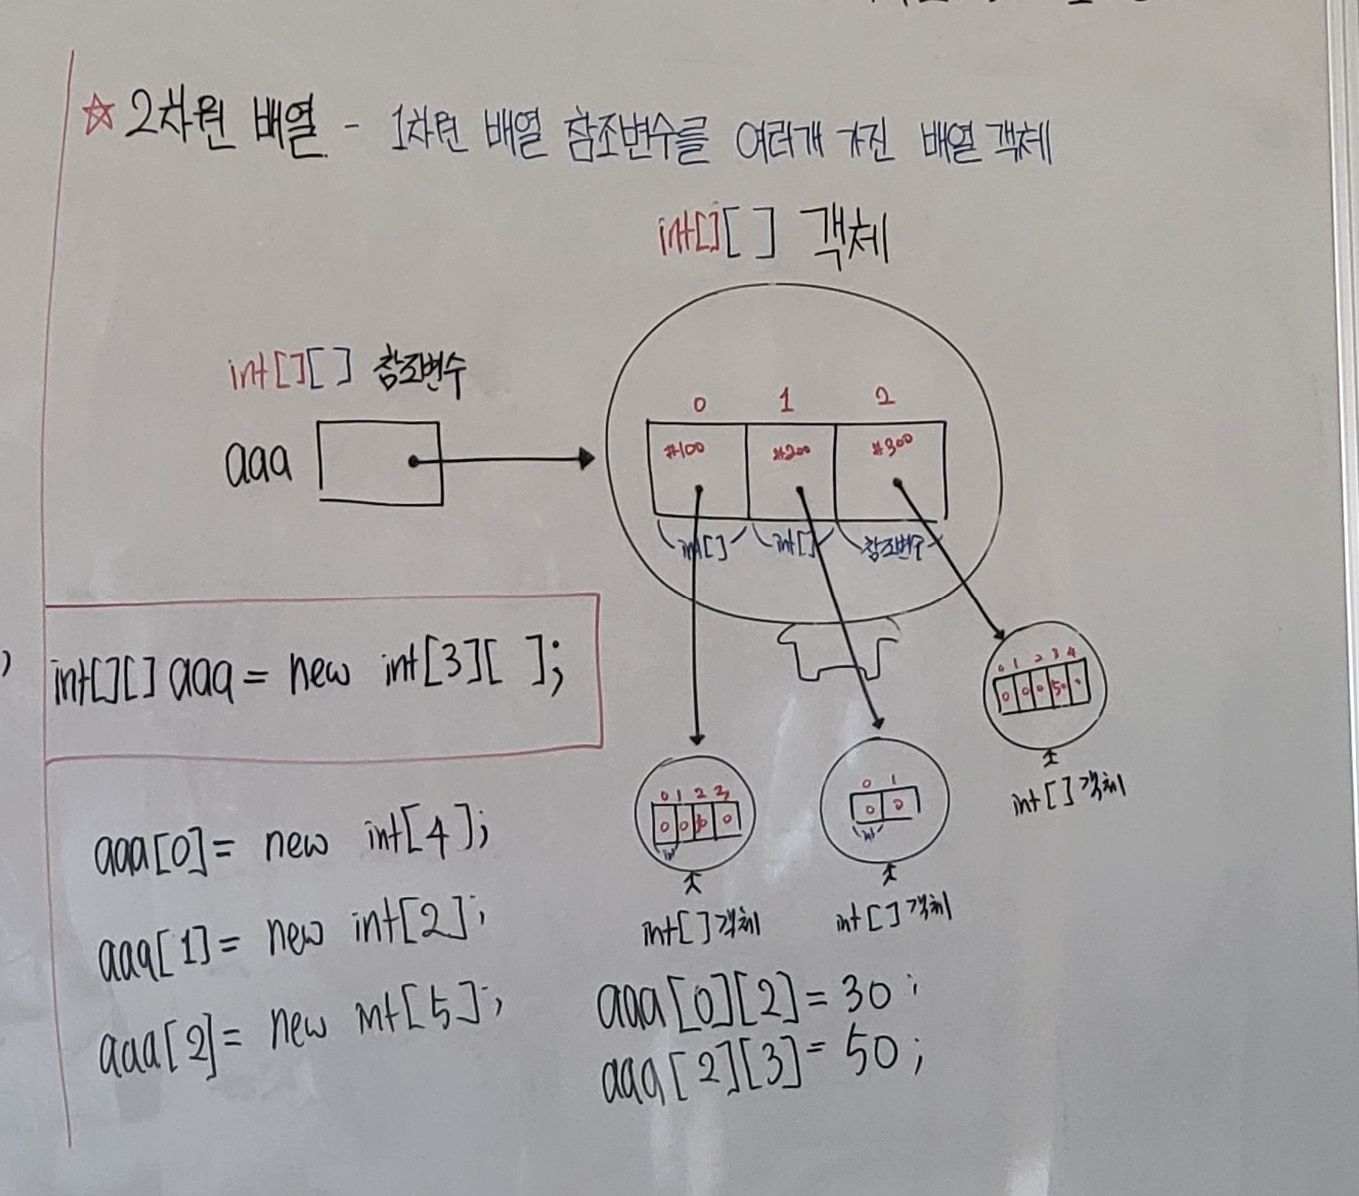 ☆ 2차원 배열 - 1차원 배열 참조변수를 여러개 가진 배열 객체
int[][] 객체
int[][] 참조변수
aaa
0 1 2
#100 #200 #300
int[] int[] 참조변수
int[][] aaa = new int[3][ ];
0 1 2 3 4
0 0 0 50
int[] 객체
0 1 2 3
0 0 30 0
int
int[] 객체
0 1
0 0
int
int[] 객체
aaa[0]= new int[4];
aaa[1]= new int[2];
aaa[2]= new int[5];
aaa[0][2]=30;
aaa[2][3]=50;